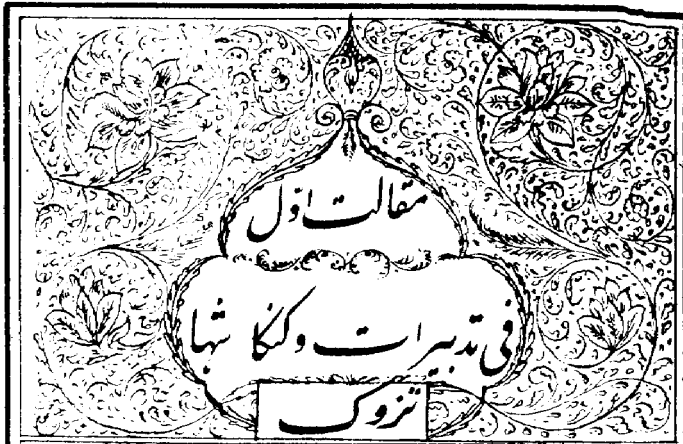 مقالت اوّل
فی تدبیرات وکنکاشها
تزوک